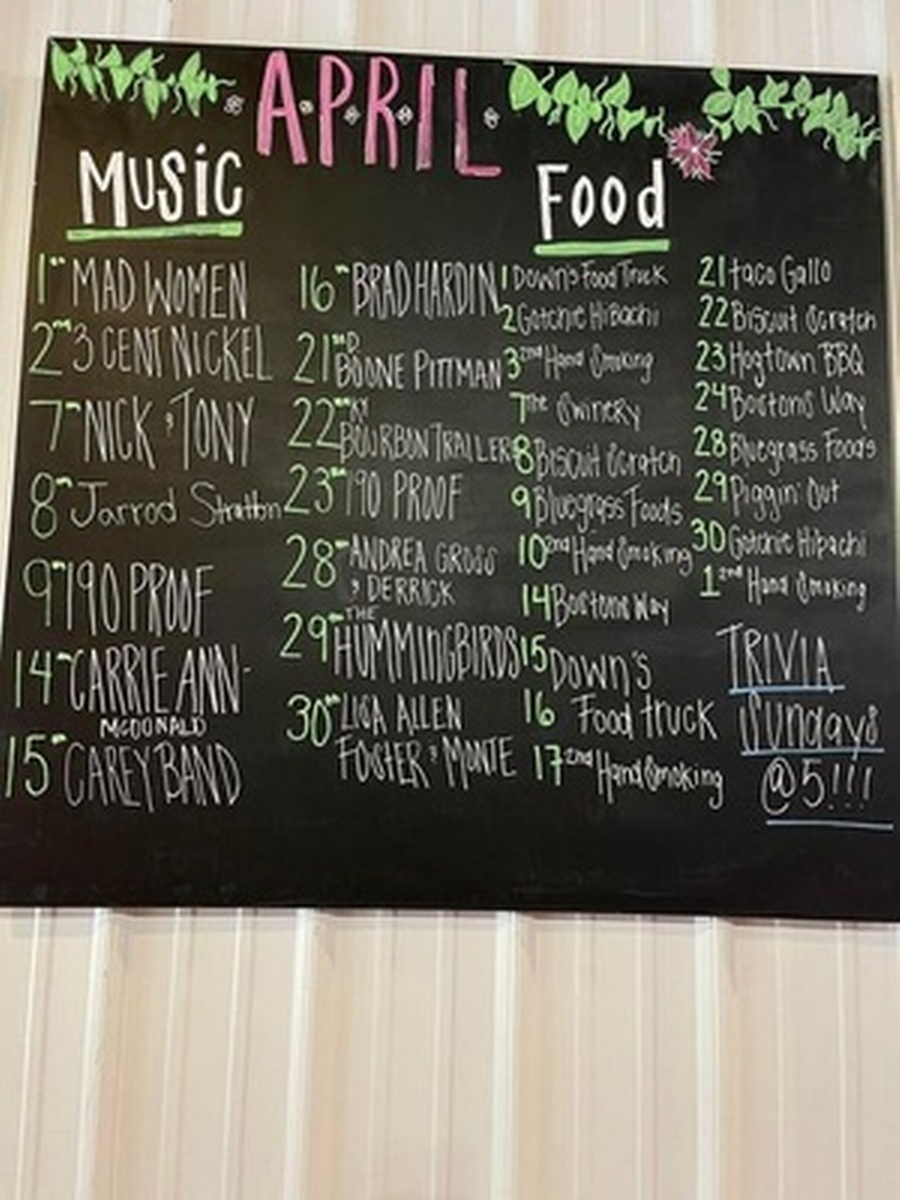 APRIL
Music
1st MAD WOMEN
2nd 3 CENT NICKEL
7th NICK & TONY
8th Jarrod Stratton
9th 190 PROOF
14th CARRIE ANN-
MCDONALD
15th CAREY BAND
16th BRAD HARDIN
21 BOONE PITTMAN
22 KY
BOURBON TRAILER
23 190 PROOF
28th ANDREA GROSS
& DERRICK
29th THE
HUMMINGBIRDS
30th LISA ALLEN
FOSTER & MONTE
Food
1 Down's Food Truck
2 Gotchie Hibachi
3 2nd Hand Smoking
7 The Swinery
8 Biscuit Scratch
9 Bluegrass Foods
10 2nd Hand Smoking
14 Bostons Way
15 Down's
16 Food truck
17 2nd Hand Smoking
21 taco Gallo
22 Biscuit Scratch
23 Hogtown BBQ
24 Bostons Way
28 Bluegrass Foods
29 Piggin' Out
30 Gotchie Hibachi
1 2nd Hand Smoking
TRIVIA
Sundays
@5!!!